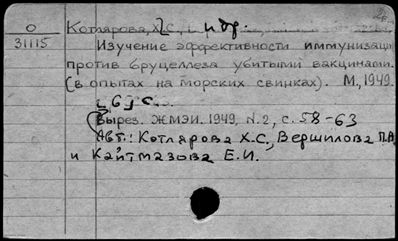 О Котлярова, Х.С., и др.
31115
Изучение эффективности иммунизаци
против бруцеллеза убитыми вакцинами.
(в опытах на морских свинках). М., 1949.
6 с.
Вырез. ЖМЭИ. 1949, N.2, с. 58-63
Авт.: Котлярова Х.С., Вершилова П.А.
и Кайтмазова Е.И.